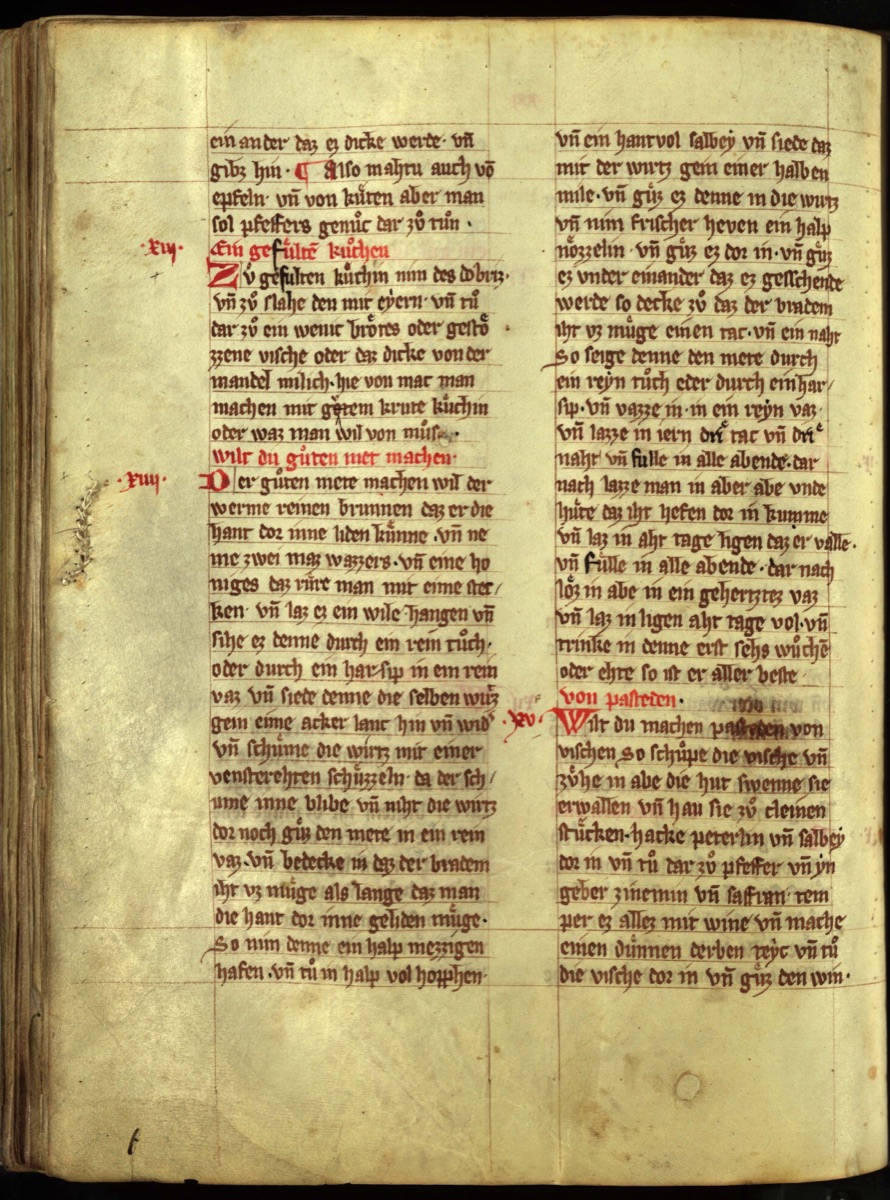 ein ander daz ez dicke werde · vñ
gibz hin · ¶ Also mahtu auch vō
epfeln · vñ von kuͤten aber man
sol pfeffers genuͦc dar zuͦ tuͦn ·
·xiij· Ein gefuͤltē kuͦchen
Zv gefulten kuͦchin nim des dobriz·
vñ zuͦ slahe den mit eẏern · vñ tuͦ
dar zuͦ ein wenic broͤtes oder gestoͤ
zzene vische oder daz dicke von der
mandel milich · hie von mac man
machen mit krute kuͦchin
oder waz man wil von
wilt du guͦten met machen ·
·xiiij· Der guͦten mete machen wil der
werme reinen brunnen daz er die
hant dor inne liden kuͤnne · vñ ne
me zwei maz wazzers · vñ eine ho
niges daz ruͤre man mit eime stec/
ken · vñ laz ez ein wile hangen vñ
sihe ez denne durch ein rein tuͦch ·
oder durch ein har · sip in ein rein
vaz vñ siede denne die selben wuͤrtz
gein eime acker lanc hin vñ wid᾽
vñ schuͤme die wuͤrtz mit einer
vensterehten schuͤzzeln · da der sch/
ume inne blibe vñ niht die wurtz
dor noch guͤz den mete in ein rein
vaz · vñ bedecke in daz der bradem
iht vz muͤge als lange daz man
die hant dor inne geliden muͤge ·
So nim denne ein halp mezzigen
hafen · vñ tuͦ in halp vol hopphen ·
vñ ein hantvol salbeẏ vñ siede daz
mit der wirtz gein einer halben
mile · vñ guͤz ez denne in die wurtz
vñ nim frischer heven ein halp
noͤzzelin · vñ guͤz ez dor in · vñ guͤz
ez vnder einander daz ez gesschende
werde so decke zuͦ daz der bradem
iht vz muͤge einen tac · vñ ein naht
So seige denne den mete durch
ein reẏn tuͦch oder durch ein har/
sip · vñ vazze in · in ein reẏn vaz ·
vñ lazze in iern driͤ tac vñ driͤ
naht vñ fulle in alle abende · dar
nach lazze man in aber abe vnde
huͤte daz iht hefen dor in kumme
vñ laz in aht tage ligen daz er valle ·
vñ fuͤlle in alle abende · dar nach
loͤz in abe in ein gehertztez vaz
vñ laz in ligen aht tage vol · vñ
trinke in denne erst sehs wuͦchē
oder ehte so ist er aller beste
von pasteden ·
·xv· Wilt du machen pasteden von
vischen So schuͦpe die vische vñ
zuͦhe in abe die hut swenne sie
erwallen vñ hau sie zuͦ cleinen
stuͤcken · hacke peterlin vñ salbeẏ
dor in vñ tuͦ dar zuͦ pfeffer vñ ẏn
geber zinemin vñ saffran · tem
per ez allez mit wine vñ mache
einen duͤnnen derben teẏc vñ tuͦ
die vische dor in vñ guͤz den win ·